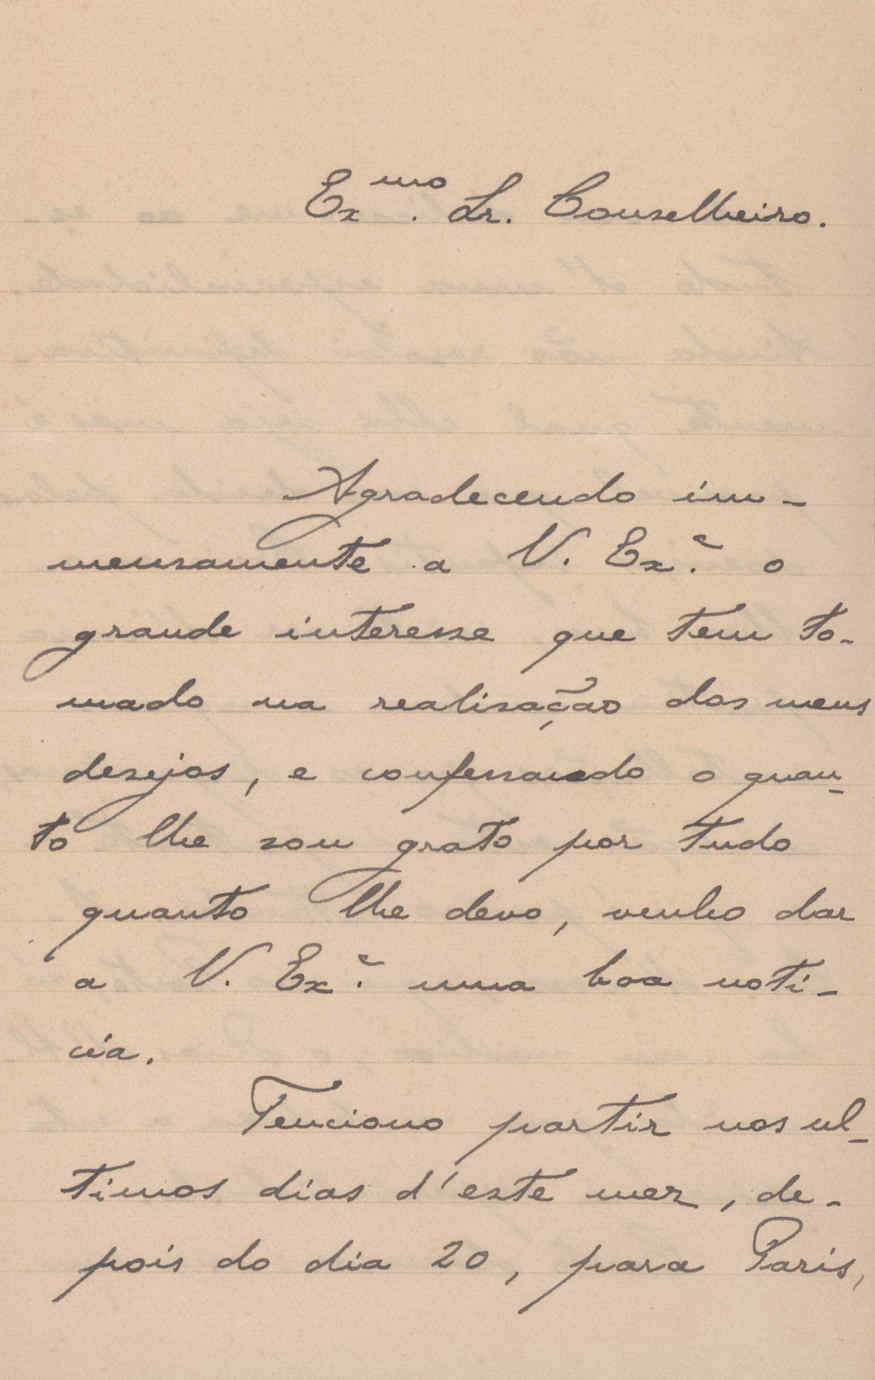 Exmo. Sr. Conselheiro.
Agradecendo im-
mensamente a V. Exª. o
grande interesse que tem to-
mado na realisação dos meus
desejos, e confessando o quan-
to lhe sou grato por tudo
quanto lhe devo, venho dar
a V. Exª. uma boa noti-
cia.
Tenciono partir nos ul-
timos dias d'este mez, de-
pois do dia 20, para Paris,